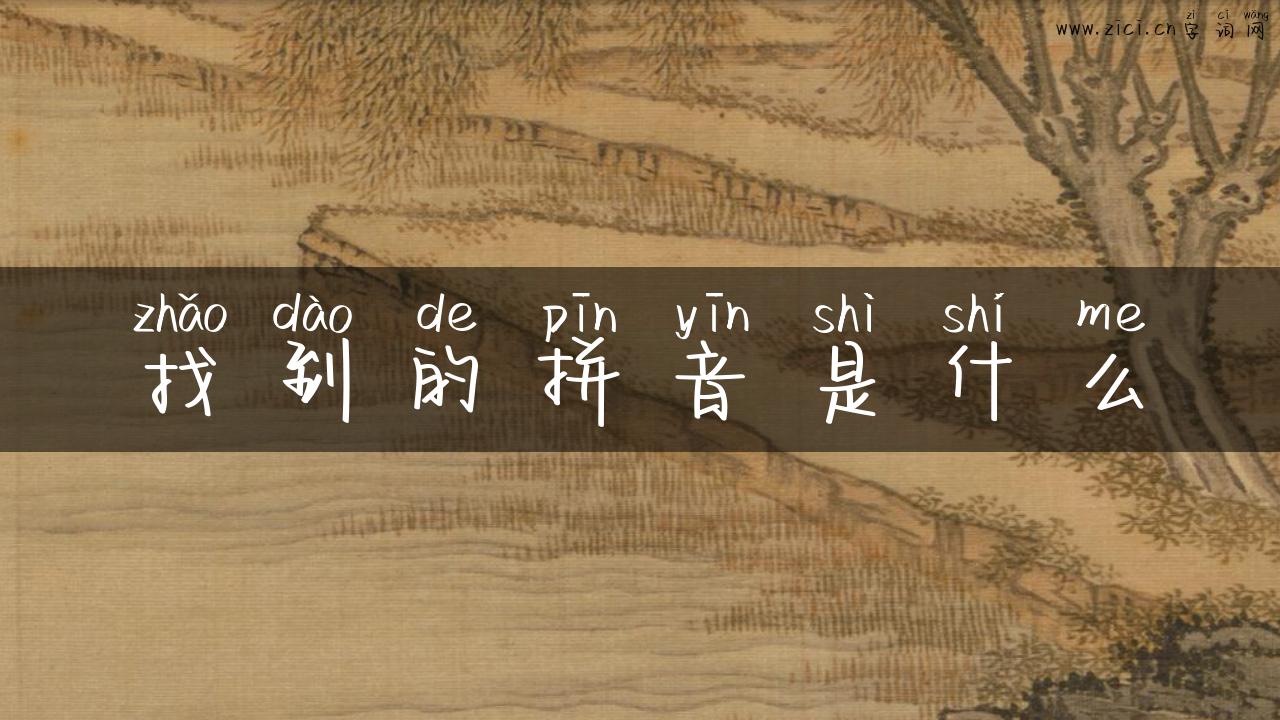 zì cí wǎng
www.zici.cn字词网
zhǎo dào de pīn yīn shì shí me
找到的拼音是什么